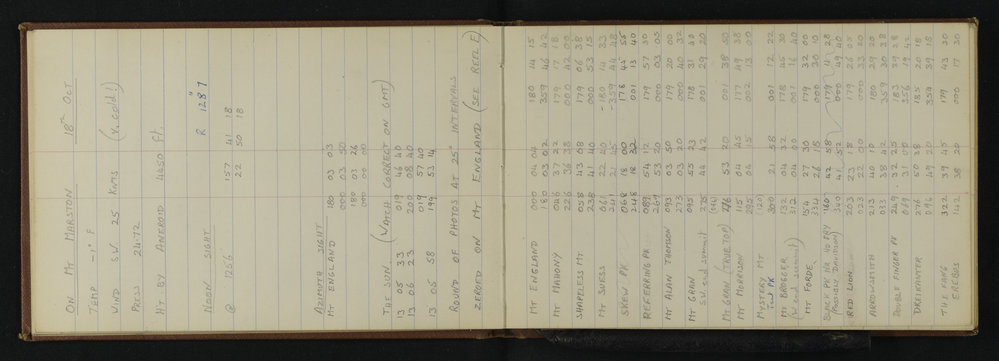 ON MT MARSTON 18th OCT
TEMP -1° F
WIND SW 25 KNTS (v. cold!)
PRESS 24.72
HT BY ANEROID 4650 ft.
NOON SIGHT R 1287
@ 1256 157 41 18
22 50 18
AZIMUTH SIGHT
MT ENGLAND 180 03 03
000 03 50
180 03 26
000 00 00
THE SUN. (WATCH CORRECT ON GMT)
13 05 33 019 46 40
13 06 23 200 08 40
019 57 40
13 05 58 199 53 14
ROUND OF PHOTOS AT 25° INTERVALS
ZEROED ON MT ENGLAND (SEE REEL E)
MT ENGLAND 000 04 04 180 14 15
180 03 02 359 46 42
MT MAHONY 046 37 22 179 17 18
226 36 38 000 42 00
SHAPELESS MT 058 43 08 179 06 38
238 41 40 000 53 15
MT SUESS 061 22 40 180 14 33
241 359 44 48
SKEW PK 068 18 00 178 45 55
248 18 32 001 13 40
REFERRING PK 089 54 12 179 57 30
269 53 50 000 03 05
MT ALAN THOMSON 093 03 50 179 20 00
273 03 20 000 40 32
MT GRAN 095 55 23 178 31
SW end summit 275 54 42 001 29 20
MT GRAN (TRUE TOP) 276 53 20 001 38 50
MT MORRISON 115 04 45 177 49 38
295 04 15 002 13 00
MYSTERY MT
300 21 58 001 12 22
MT BROGGER 132 04 32 178 45 30
(W end summit) 312 04 00 001 16 40
MT FORDE 154 27 30 179 32 00
334 26 15 000 30 10
160 42 58 179 11 28
(POSSIBLY DAVIDSON) 340 41 52 000 49 40
RED LION 203 23 18 179 26 05
023 22 00 000 33 20
ARROWSMITH 213 40 10 180 29 20
033 38 42 359 30 28
DOUBLE FINGER PT 249 32 25 183 29 28
069 31 00 356 19 42
DREIKANTER 276 58 38 185 20 15
096 57 20 354 39 18
THE FANG 322 39 45 179 43 30
EREBUS 142 38 20 000 17 30